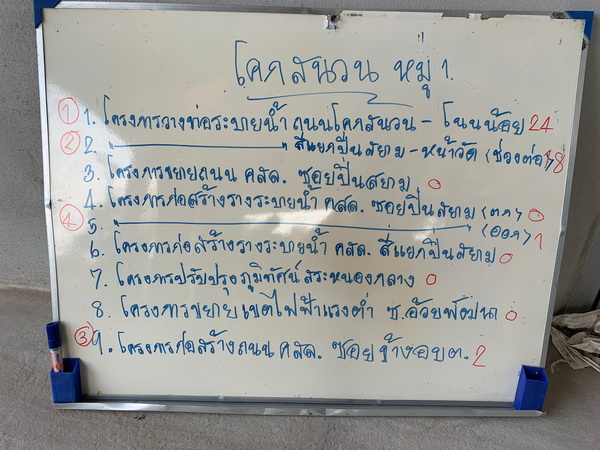 โคกสนวน หมู่ 1.
① 1. โครงการวางท่อระบายน้ำ ถนนโคกสนวน - โนนน้อย 24
② 2. " " สี่แยกปิ่นสยาม - หน้าวัด (ช่วงต่อ) 8
3. โครงการขยายถนน คสล. ซอยปิ่นสยาม 0
4. โครงการก่อสร้างรางระบายน้ำ คสล. ซอยปิ่นสยาม (ตก) 0
④ 5. " " (ออก) 1
6. โครงการก่อสร้างรางระบายน้ำ คสล. สี่แยกปิ่นสยาม 0
7. โครงการปรับปรุงภูมิทัศน์สระหนองกลาง 0
8. โครงการขยายเขตไฟฟ้าแรงต่ำ ซ.อ้วย 0
③ 9. โครงการก่อสร้างถนน คสล. ซอยข้างอบต. 2